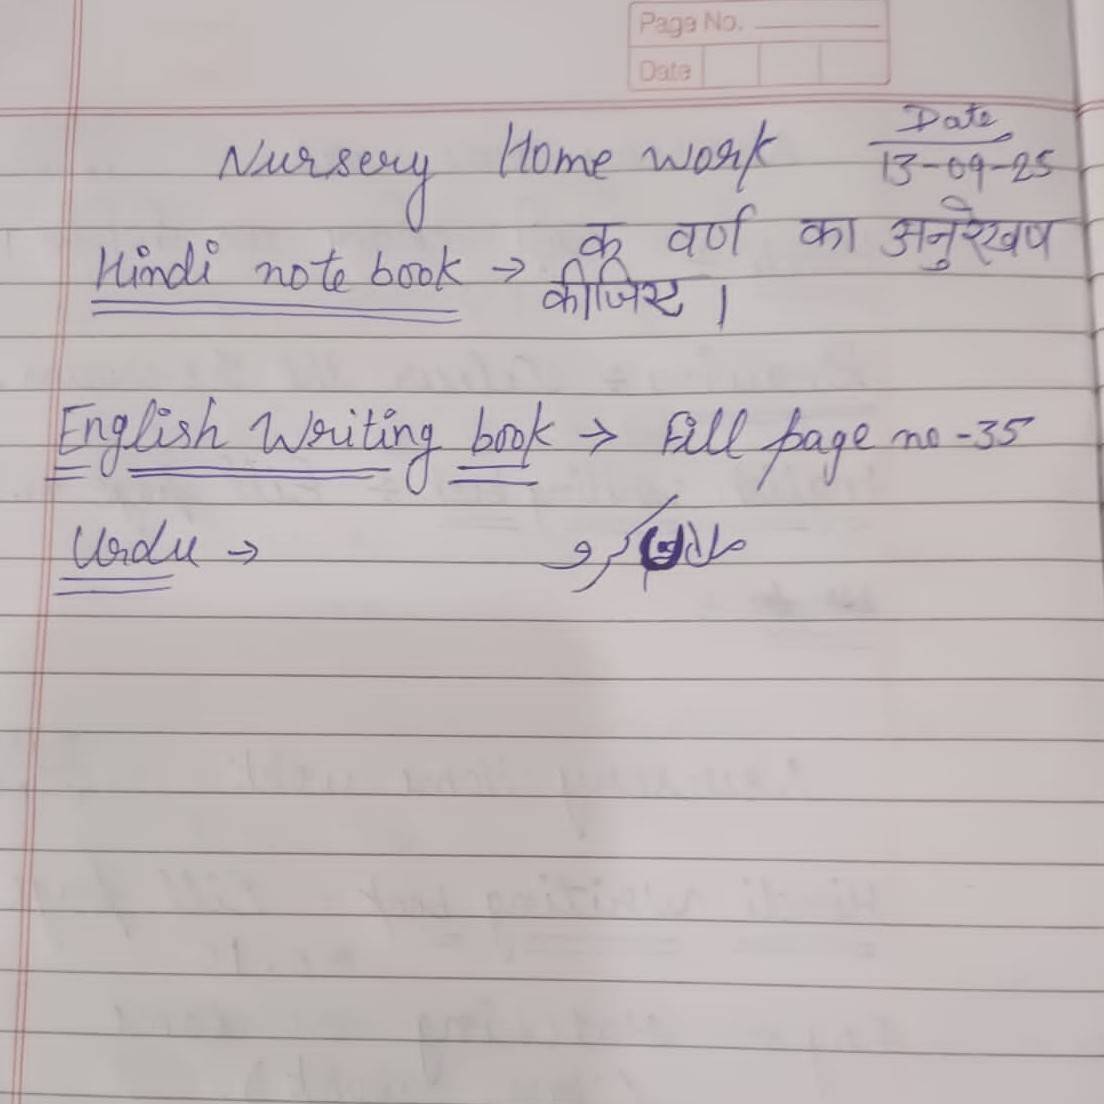 Page No.
Date
Date
13-09-25
Nursery Home work
Hindi note book → क वर्ण का अनुरेखण
कीजिए ।
English Writing book → Fill page no -35
Urdu → کرو